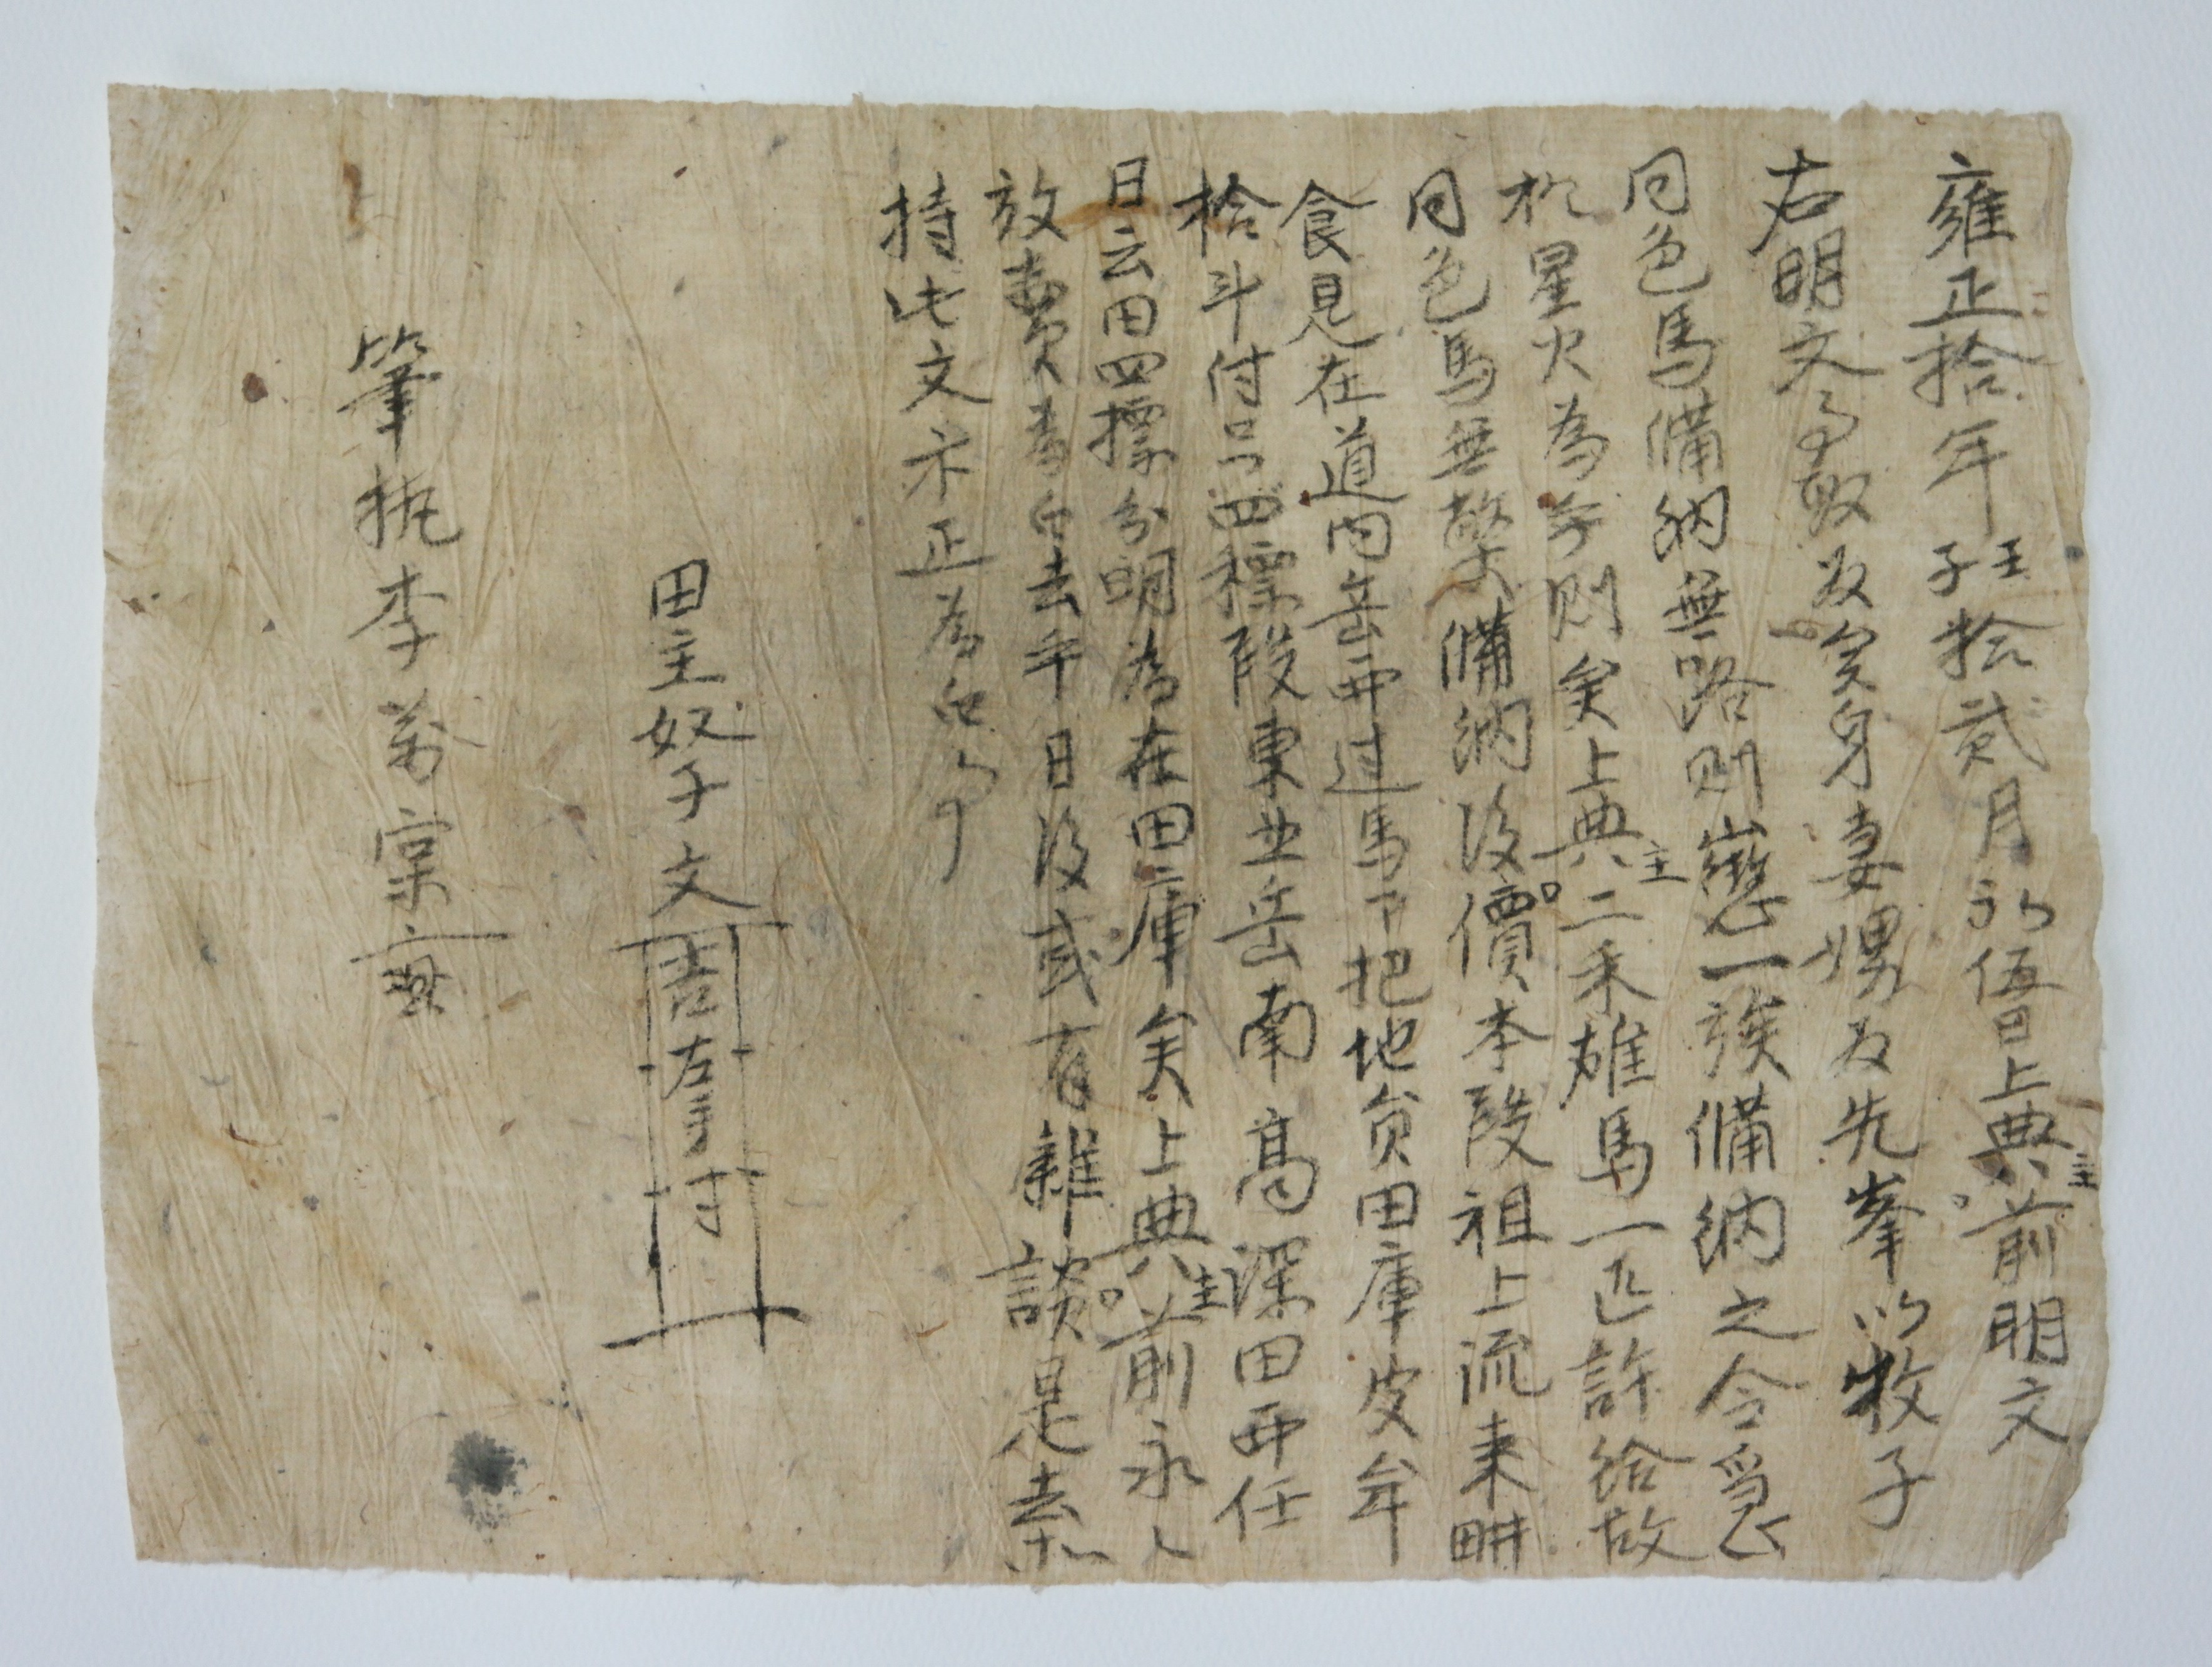 雍正拾年壬子拾貳月初伍日上典主前明文
右明文事段及矣身妻娚及先峯以牧子
同色馬備納無路則懲一族備納之令急
於星火為乎則矣上典主二禾雄馬一匹許給故
同色馬無弊備納後價本段祖上流来畊
食是在道內岳西过馬下把地員田庫皮牟
拾斗付只四標段東並岳南高深田西任
日云田四標分明為在田庫矣上典主前永永
放賣為白去乎日後或有雜談是去
持此文卞正為白事
田主奴子文吉左手寸
筆執李萬宗